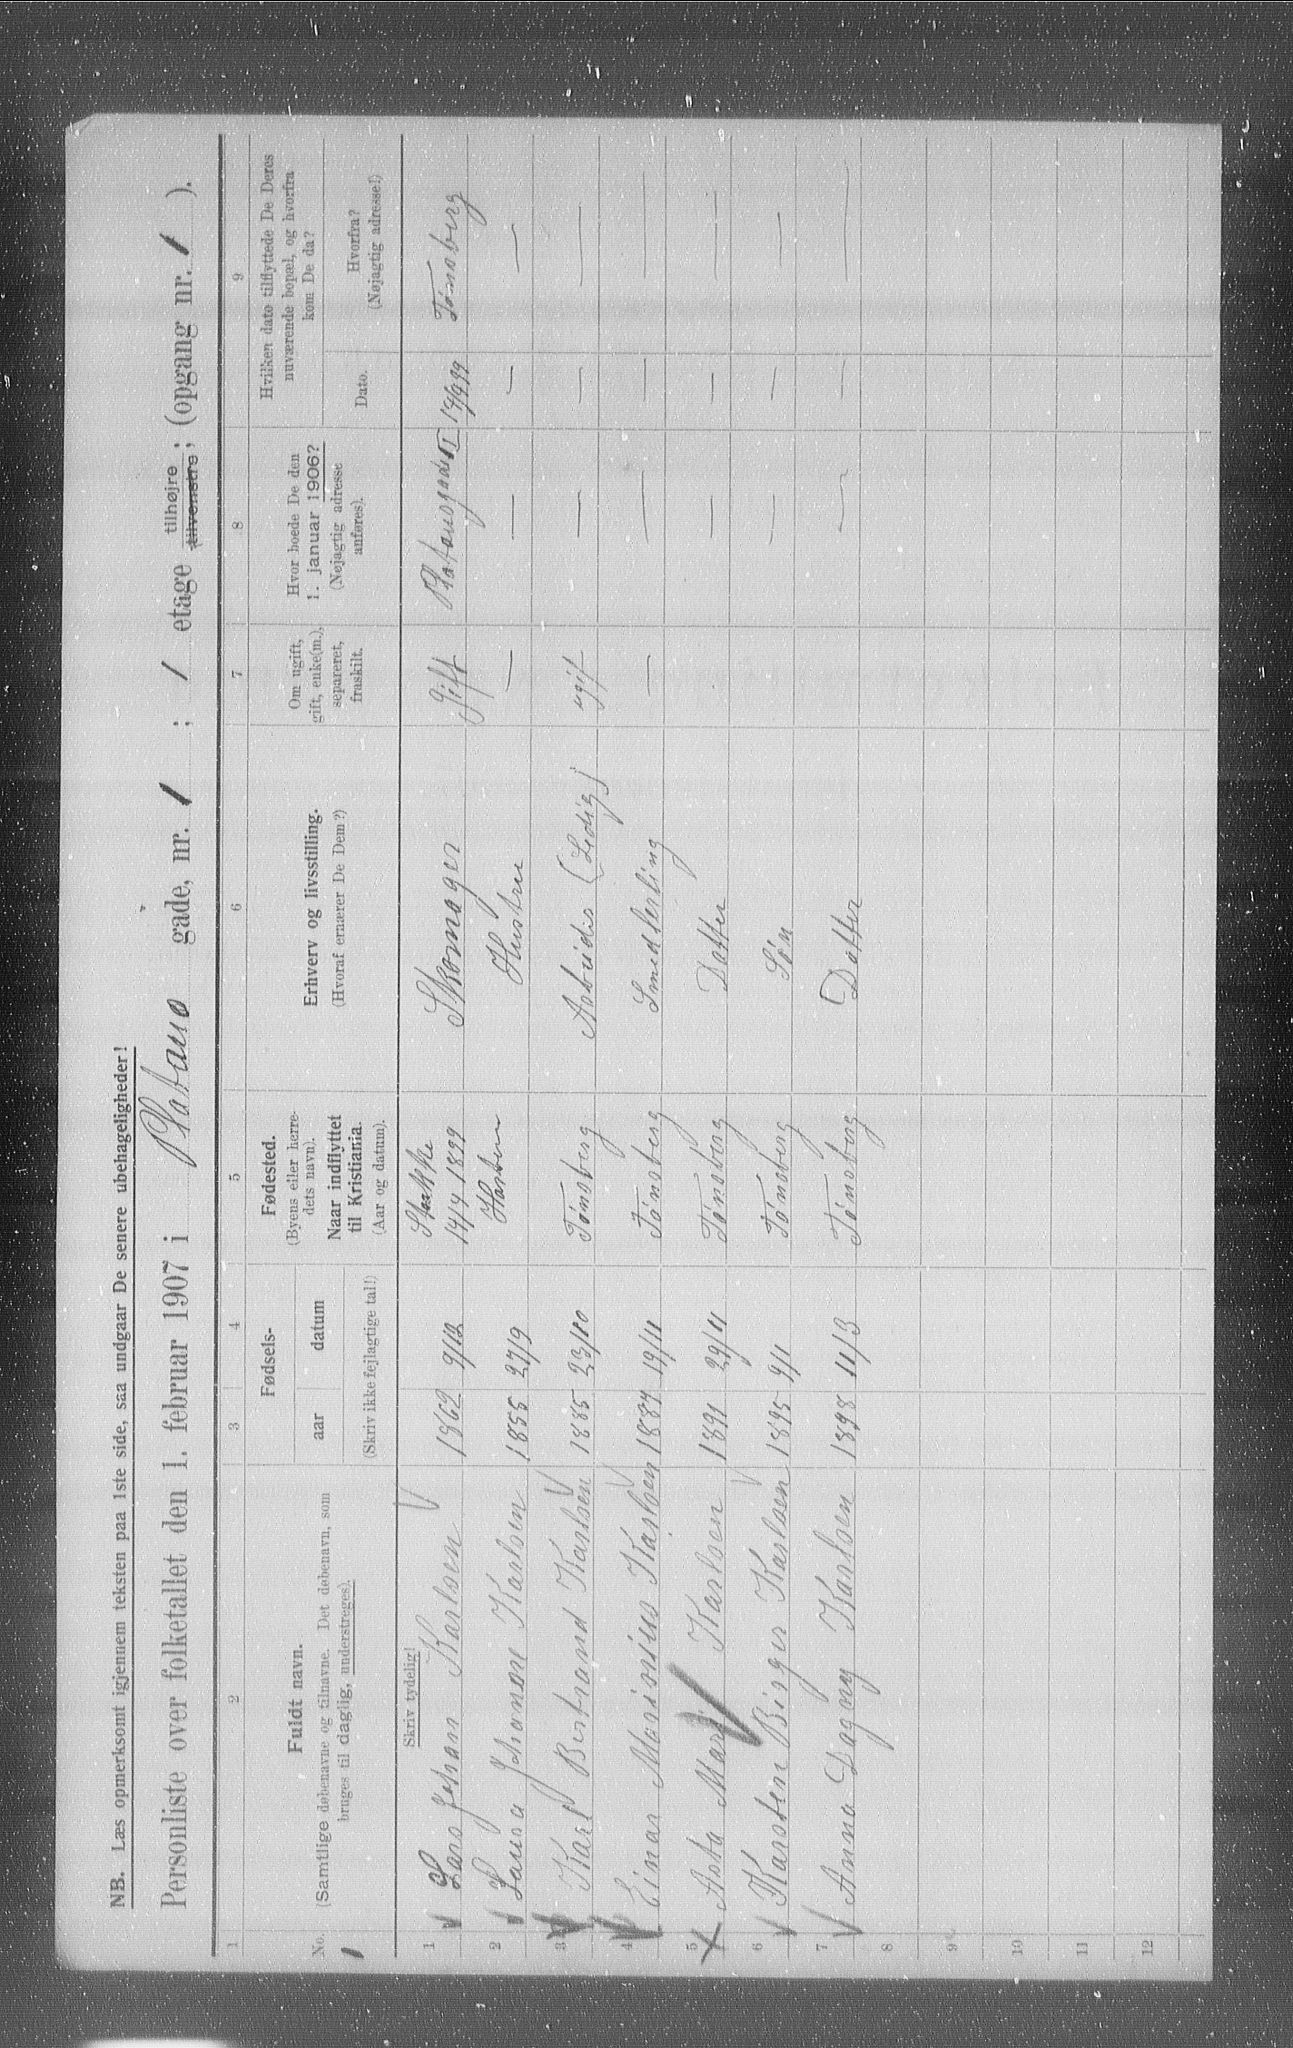 NB. Læs opmerksomt igjennem teksten paa 1ste side, saa undgaar De senere ubehageligheder!
Personliste over folketallet den 1. februar 1907 i Platans gade, nr. 1 ; 1 etage tilhøjre (tilvenstre ; (opgang nr. 1 ).
1 2 3 4 5 6 7 8 9
No. 1
Fuldt navn.
(Samtlige døbenavne og tilnavne. Det døbenavn, som
bruges til daglig, understreges).
Fødsels-
aar datum
(Skriv ikke fejlagtige tal!)
Fødested.
(Byens eller herre-
dets navn).
Naar indflyttet
til Kristiania.
(Aar og datum).
Erhverv og livsstilling.
(Hvoraf ernærer De Dem?)
Om ugift,
gift, enke(m.),
separeret,
fraskilt.
Hvor boede De den
1. januar 1906?
(Nøjagtig adresse
anføres).
Hvilken dato tilflyttede De Deres
nuværende bopæl, og hvorfra
kom De da?
Dato.
Hvorfra?
(Nøjagtig adresse!)
Skriv tydelig!
1 Lars Johan Karlsen 1862 9/12 Stokke 14/4 1899 Skomager Gift Platousgade Tønsberg
2 Laura Johanne Karlsen 1855 27/9 Hustru — — — —
3 Karl Bertrand Karlsen 1885 23/10 Tønsberg Arbeider (Ledig) ugift — — —
4 Einar Marinius Karlsen 1887 19/11 Tønsberg Smedlerling — — — —
5 Asta Marie Karlsen 1891 29/11 Tønsberg Datter — — —
6 Karsten Birger Karlsen 1895 9/1 Tønsberg Søn — — —
7 Anna Dagny Karlsen 1898 11/3 Tønsberg Datter — — —
8
9
10
11
12